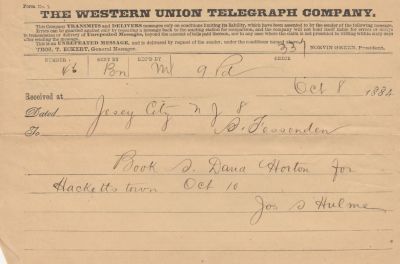 Form No. 1.
THE WESTERN UNION TELEGRAPH COMPANY.
This Company TRANSMITS and DELIVERS messages only on conditions limiting its liability, which have been assented to by the sender of the following message.
Errors can be guarded against only by repeating a message back to the sending station for comparison, and the company will not hold itself liable for errors or delays
in transmission or delivery of Unrepeated Messages,
after sending the message.
This is an UNREPEATED MESSAGE, and is delivered by request of the sender, under the conditions named above.
THOS. T. ECKERT, General Manager. NORVIN GREEN, President.
NUMBER SENT BY REC'D BY CHECK
46 Bn M 9 Pd 33
Received at Oct 8 1884
Dated Jersey City N J 8
To S. Fessenden
Book S. Dana Horton for
Hackettstown Oct 10
Jos S Hulme